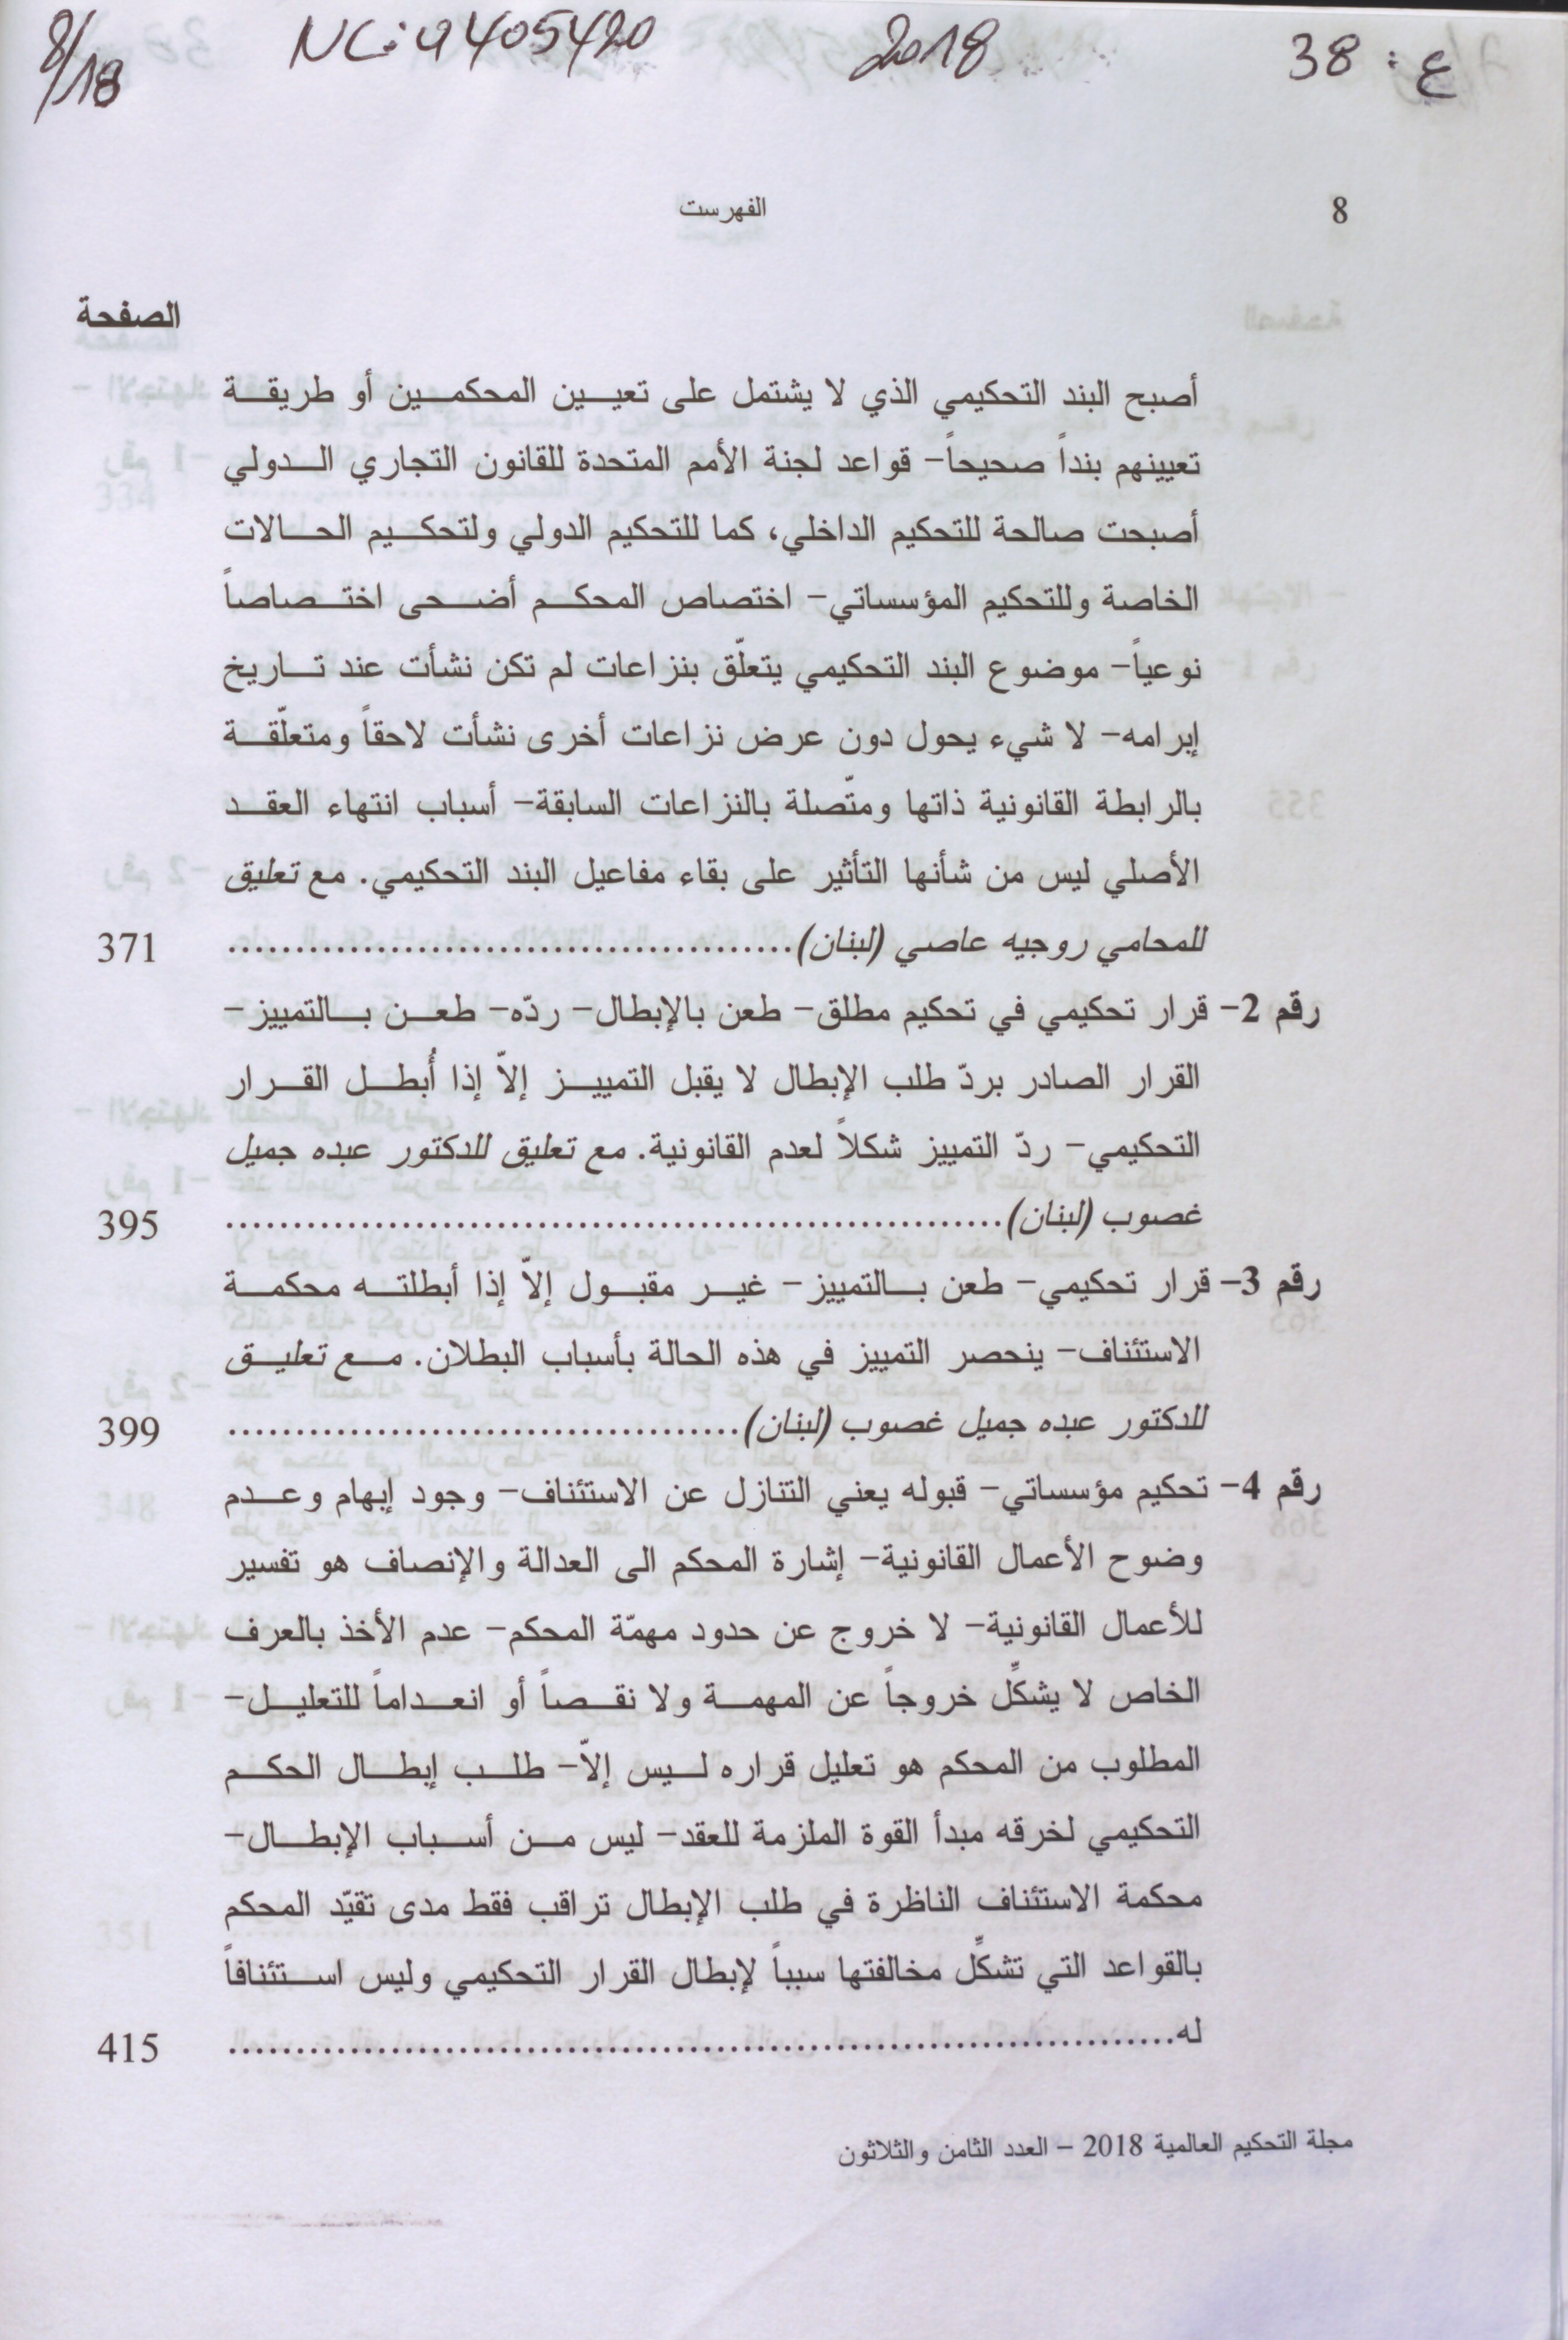 ع : 38 2018 NC: 9405420 8/18
8 الفهرست
الصفحة
أصبح البند التحكيمي الذي لا يشتمل على تعيين المحكمين أو طريقة
تعيينهم بنداً صحيحاً- قواعد لجنة الأمم المتحدة للقانون التجاري الدولي
أصبحت صالحة للتحكيم الداخلي، كما للتحكيم الدولي ولتحكيم الحالات
الخاصة وللتحكيم المؤسساتي- اختصاص المحكم أضحى اختصاصاً
نوعياً- موضوع البند التحكيمي يتعلّق بنزاعات لم تكن نشأت عند تاريخ
إبرامه- لا شيء يحول دون عرض نزاعات أخرى نشأت لاحقاً ومتعلّقة
بالرابطة القانونية ذاتها ومتّصلة بالنزاعات السابقة- أسباب انتهاء العقد
الأصلي ليس من شأنها التأثير على بقاء مفاعيل البند التحكيمي. مع تعليق
للمحامي روجيه عاصي (لبنان)........................................ 371
رقم 2- قرار تحكيمي في تحكيم مطلق- طعن بالإبطال- ردّه- طعن بالتمييز-
القرار الصادر بردّ طلب الإبطال لا يقبل التمييز إلاّ إذا أُبطل القرار
التحكيمي- ردّ التمييز شكلاً لعدم القانونية. مع تعليق للدكتور عبده جميل
غصوب (لبنان)......................................................... 395
رقم 3- قرار تحكيمي- طعن بالتمييز- غير مقبول إلاّ إذا أبطلته محكمة
الاستئناف- ينحصر التمييز في هذه الحالة بأسباب البطلان. مع تعليق
للدكتور عبده جميل غصوب (لبنان)..................................... 399
رقم 4- تحكيم مؤسساتي- قبوله يعني التنازل عن الاستئناف- وجود إبهام وعدم
وضوح الأعمال القانونية- إشارة المحكم الى العدالة والإنصاف هو تفسير
للأعمال القانونية- لا خروج عن حدود مهمّة المحكم- عدم الأخذ بالعرف
الخاص لا يشكّل خروجاً عن المهمة ولا نقصاً أو انعداماً للتعليل-
المطلوب من المحكم هو تعليل قراره ليس إلاّ- طلب إبطال الحكم
التحكيمي لخرقه مبدأ القوة الملزمة للعقد- ليس من أسباب الإبطال-
محكمة الاستئناف الناظرة في طلب الإبطال تراقب فقط مدى تقيّد المحكم
بالقواعد التي تشكّل مخالفتها سبباً لإبطال القرار التحكيمي وليس استئنافاً
له..................................................................... 415
مجلة التحكيم العالمية 2018 - العدد الثامن والثلاثون